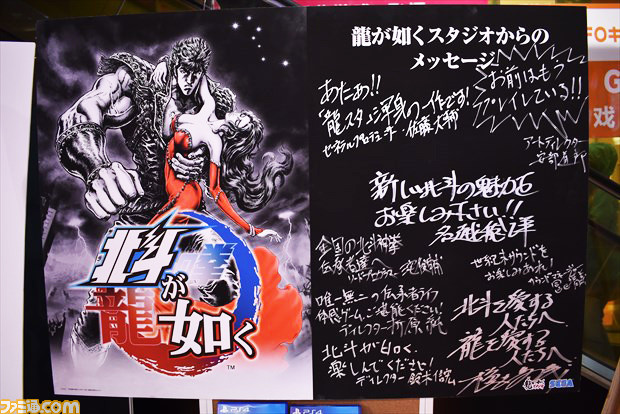 北斗が如く
TM
龍が如くスタジオからの
メッセージ
あたぁ!!
「龍スタ」渾身の一作です!
ゼネラルプロデューサー 佐藤大輔
お前はもう
プレイしている!!
アートディレクター
新しい北斗の魅力を
お楽しみ下さい!!
名越稔洋
全国の北斗神拳
伝承者達へ
世紀末サウンドを
お楽しみあれ!
唯一無二の伝承者ライフ
体感ゲーム、ご堪能ください!
ディレクター
北斗が如く、
楽しんでくださせ!
ディレクター 鈴木信宏
北斗を愛する
人たちへ
龍を愛する
人たちへ
SEGA
PS4
PS4
ファミ通.com